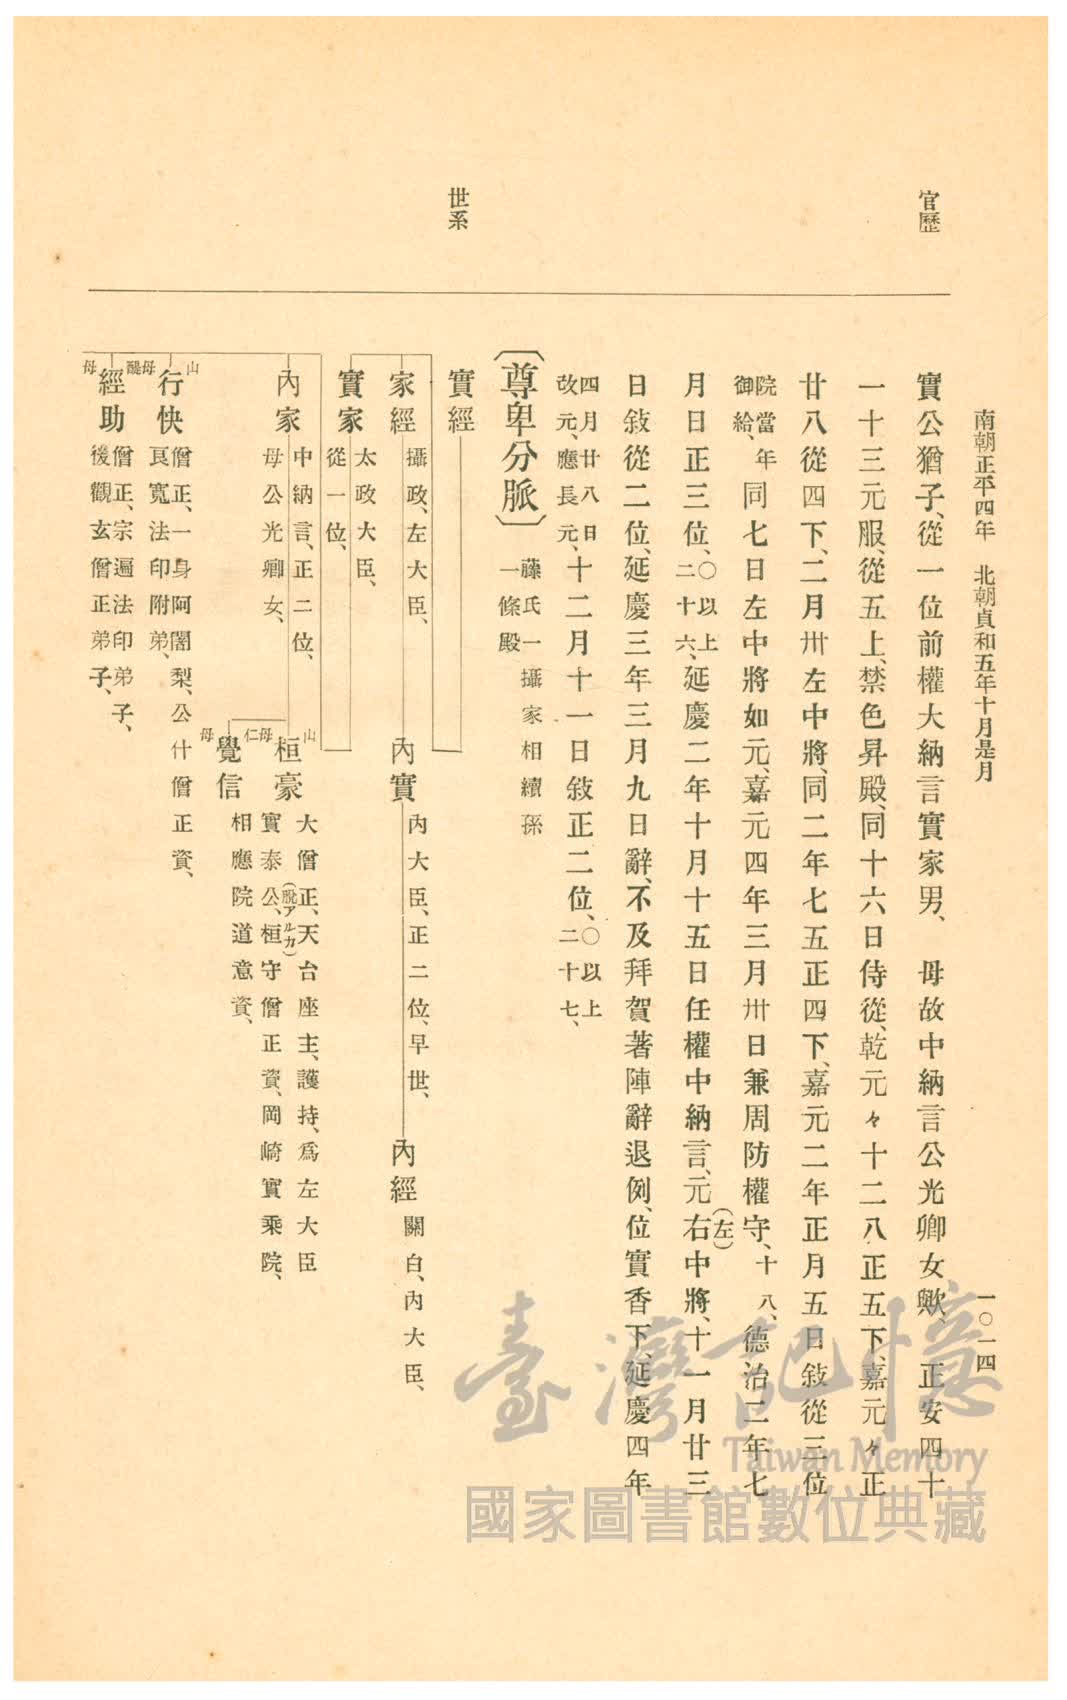 南朝正平四年　北朝貞和五年十月是月
一〇一四
官歷
世系
實公猶子、從一位前權大納言實家男、　母故中納言公光卿女歟、　正安四十
一十三元服、從五上、禁色昇殿、同十六日侍從、乾元々十二八正五下、嘉元々正
廿八從四下、二月卅左中將、同二年七五正四下、嘉元二年正月五日敍從三位
院當年
御給、
同七日左中將如元、嘉元四年三月卅日兼周防權守、十八、德治二年七
月日正三位、〇以上二十六、延慶二年十月十五日任權中納言、元右(左)中將、十一月廿三
日敍從二位、延慶三年三月九日辭、不及拜賀著陣辭退例、位實香下、延慶四年
四月廿八日
改元、應長元、
十二月十一日敍正二位、〇以上二十七、
〔尊卑分脈〕
藤氏一攝家相續孫
一條殿
實經
家經
攝政、左大臣、
內實
內大臣、正二位、早世、
內經
關白、內大臣、
實家
太政大臣、
從一位、
內家
中納言、正二位、
母公光卿女、
山
桓豪
母
大僧正、天台座主、護持、爲左大臣
實泰公、(脫アルカ)桓守僧正資、岡崎實乘院、
仁
覺信
母
相應院道意資、
山
行快
母
僧正、一身阿闍梨、公什僧正資、
良寬法印附弟、
醍
經助
母
僧正、宗遍法印弟子、
後觀玄僧正弟子、
臺灣記憶
Taiwan Memory
國家圖書館數位典藏